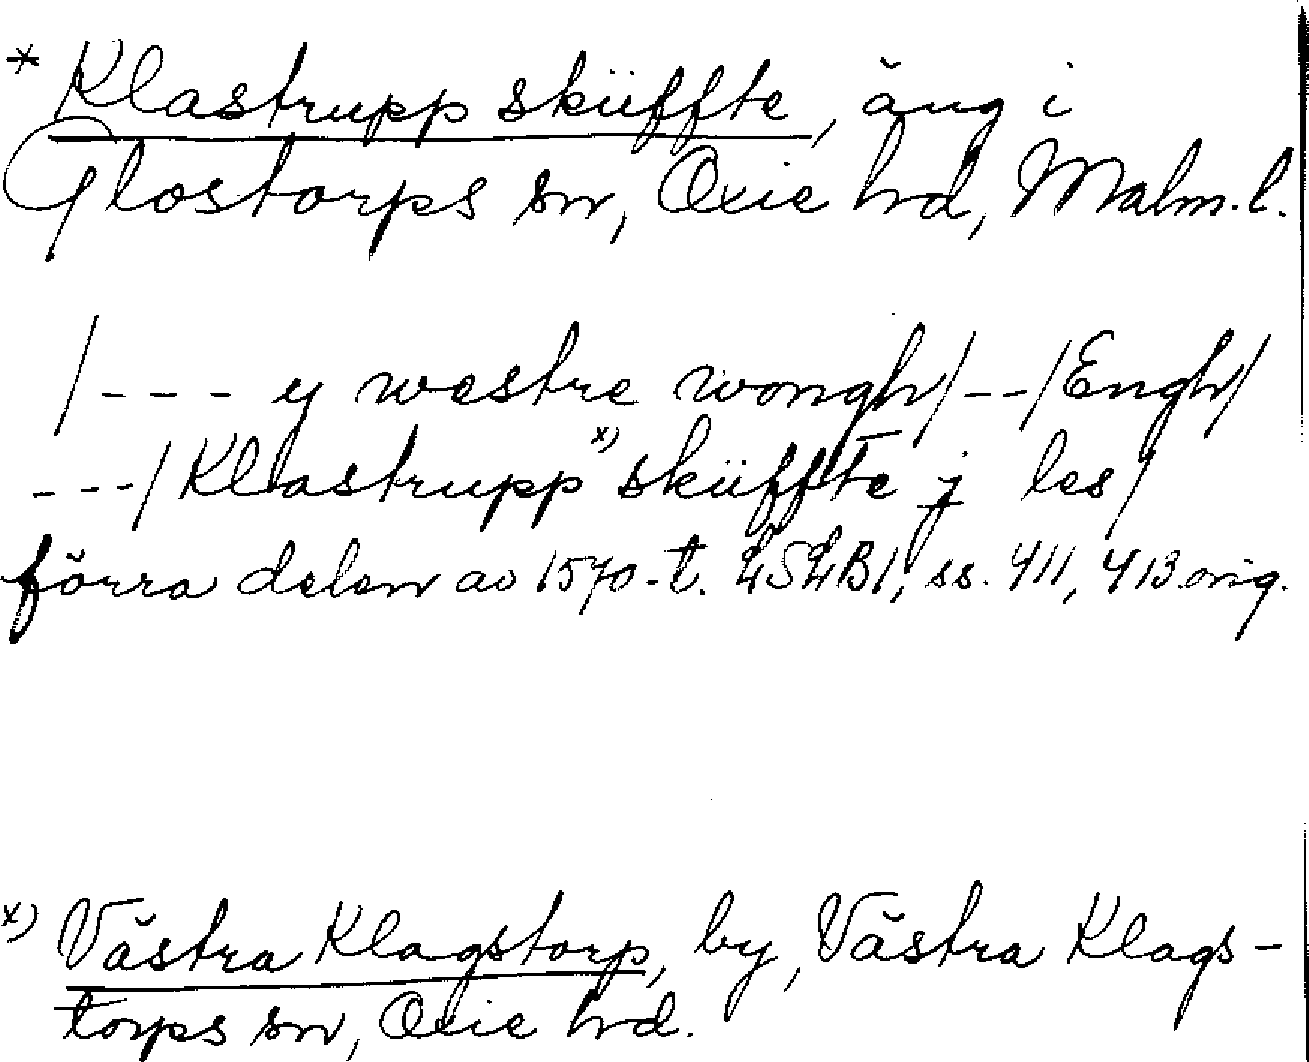 * Klastrupp sküffte, äng i
Glostorps sn, Oxie hd, Malm. l.
/---- y westre wongh/--/Engh/
---/Klastrupp x) sküffte j les/
förra delen av 1570-t. LSLB1, ss. 411, 413 orig.
x) Västra Klagstorp, by, Västra Klags-
torps sn, Oxie hd.